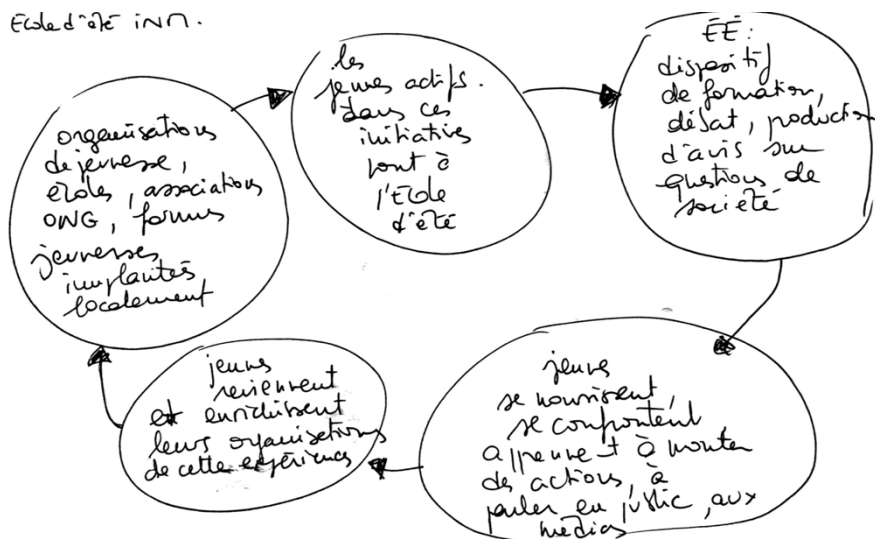 Ecole d'été iNM.
organisations
de jeunesse,
écoles, associations
ONG, forums
jeunesses
implantés
localement
les
jeunes actifs.
dans ces
initiatives
vont à
l'Ecole
d'été
ÉÉ:
dispositif
de formation,
débat, production
d'avis sur
questions de
société
jeunes
se nourrissent,
se confrontent,
apprennent à monter
des actions, à
parler en public, aux
médias
jeunes
reviennent
et enrichissent
leurs organisations
de cette expérience